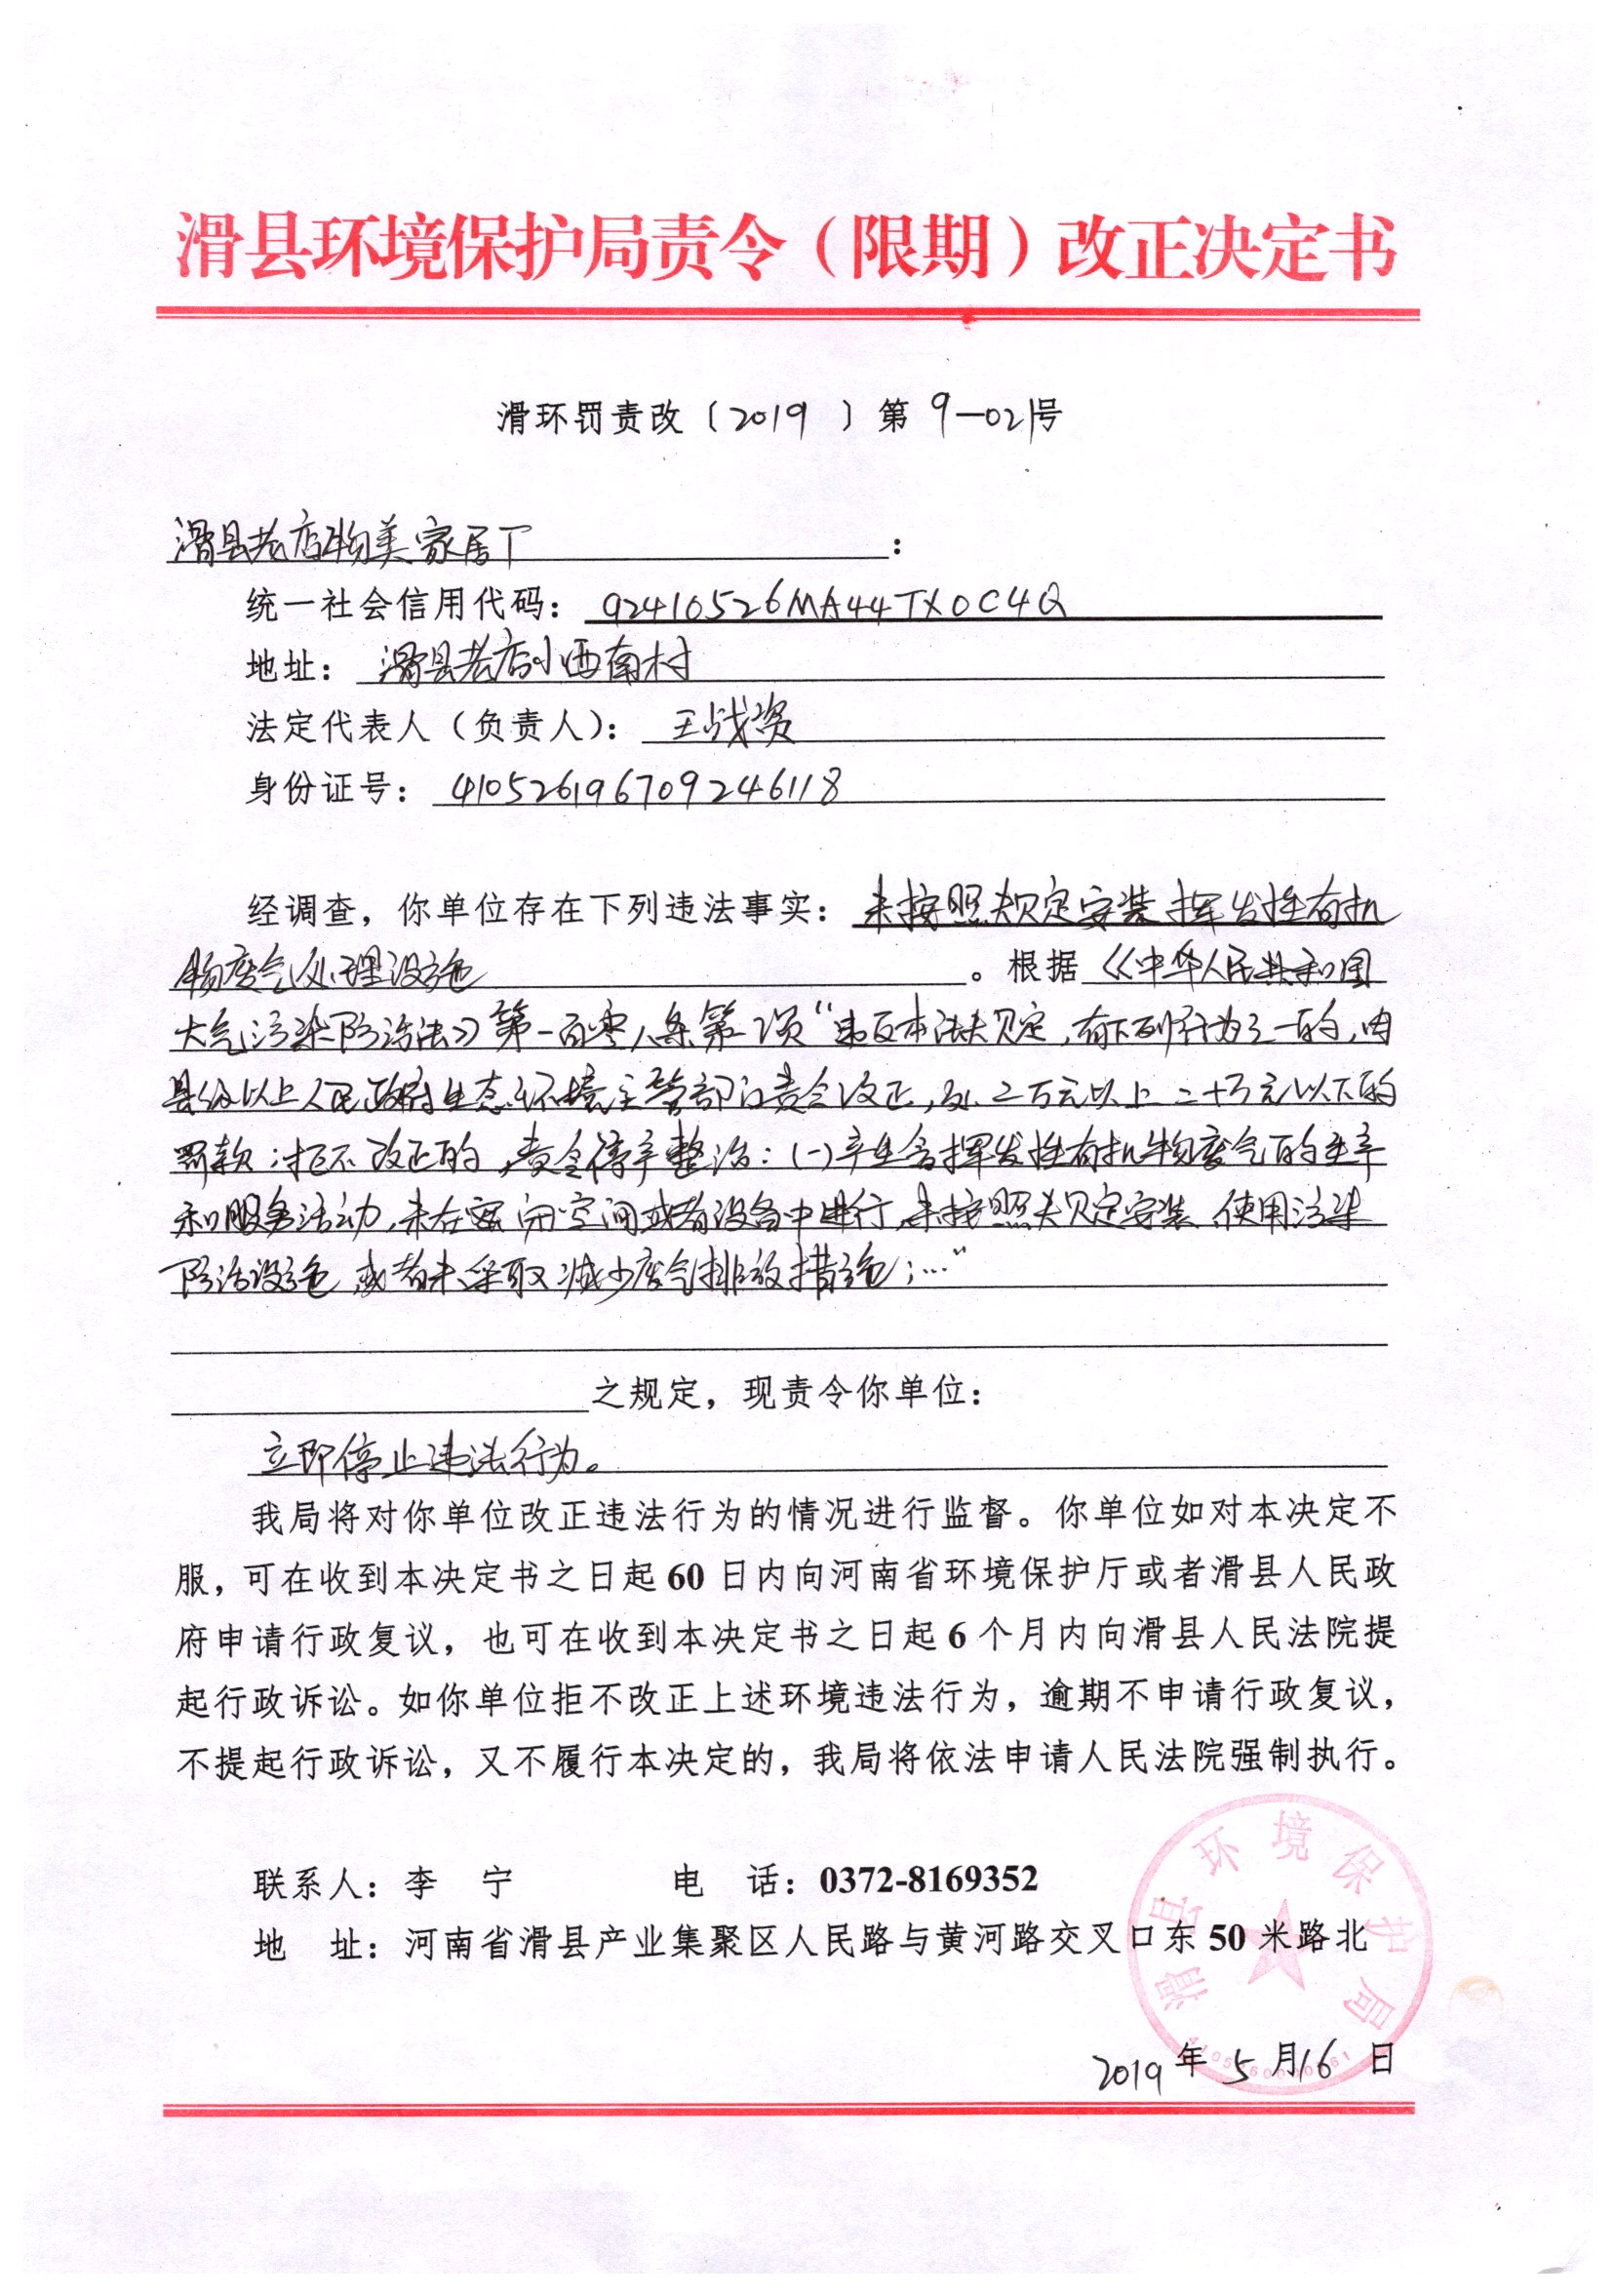 滑县环境保护局责令（限期）改正决定书
滑环罚责改〔2019〕第9-021号
滑县老店物美家居厂：
统一社会信用代码：92410526MA44TX0C4Q
地址：滑县老店小西南村
法定代表人（负责人）：王战资
身份证号：410526196709246118
经调查，你单位存在下列违法事实：未按照规定安装挥发性有机
物废气处理设施。根据《中华人民共和国
大气污染防治法》第一百零八条第1项“违反本法规定，有下列行为之一的，由
县级以上人民政府生态环境主管部门责令改正，处二万元以上二十万元以下的
罚款；拒不改正的，责令停产整治：(一)产生含挥发性有机物废气的生产
和服务活动，未在密闭空间或者设备中进行，未按照规定安装、使用污染
防治设施，或者未采取减少废气排放措施；…”
之规定，现责令你单位：
立即停止违法行为。
我局将对你单位改正违法行为的情况进行监督。你单位如对本决定不
服，可在收到本决定书之日起60日内向河南省环境保护厅或者滑县人民政
府申请行政复议，也可在收到本决定书之日起6个月内向滑县人民法院提
起行政诉讼。如你单位拒不改正上述环境违法行为，逾期不申请行政复议，
不提起行政诉讼，又不履行本决定的，我局将依法申请人民法院强制执行。
联系人：李　宁　电　话：0372-8169352
地　址：河南省滑县产业集聚区人民路与黄河路交叉口东50米路北
滑县环境保护局
2019年5月16日